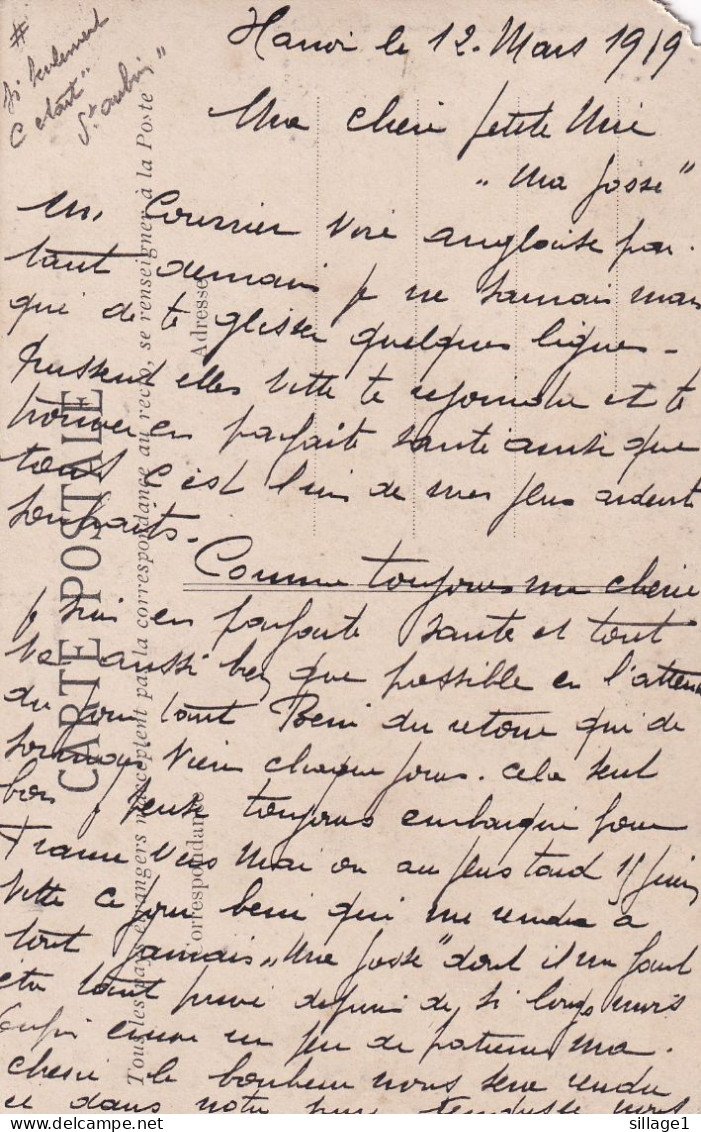 Hanoi le 12. Mars 1919
#
Si seulement
c'etait "
St aubin "
Ma cheri petite Mimi
" Ma gosse "
Un Courrier voie anglaise par.
tant demain je ne saurais man
que de te glisser quelques lignes -
Puissent elles vitte te rejoindre et te
trouver en parfaite santé ainsi que
tous c'est l'un de mes plus ardent
souhaits.
Comme toujours ma cherie
je suis en parfaite sante et tout
va aussi bien que possible en l'attente
du jour tant Beni du retour qui de
vien chaque jour. cela sent
bon je pense toujours embarqui pour
France vers Mai ou au plus tard 15 Juin
Vitte ce jour beni qui me rendra à
tout jamais "Ma Gosse" dont il m faut
etre tant privé depuis de si longs mois
Enfin encore un peu de patience ma.
cherie le bonheur nous sera rendu
et dans notre tendresse nous
CARTE POSTALE
Tous les pays étrangers n'acceptent pas la correspondance au recto, se renseigner à la Poste
Correspondance
Adresse
sillage1